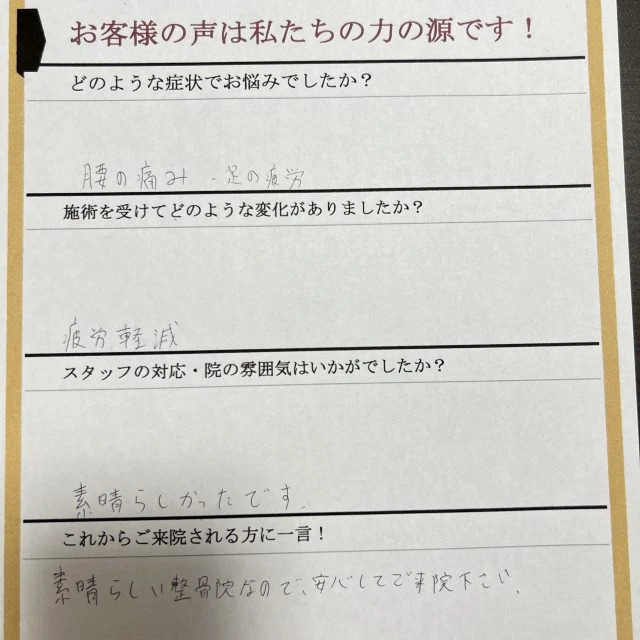 お客様の声は私たちの力の源です！
どのような症状でお悩みでしたか？
腰の痛み・足の疲労
施術を受けてどのような変化がありましたか？
疲労軽減
スタッフの対応・院の雰囲気はいかがでしたか？
素晴らしかったです。
これからご来院される方に一言！
素晴らしい整骨院なので、安心してご来院下さい。